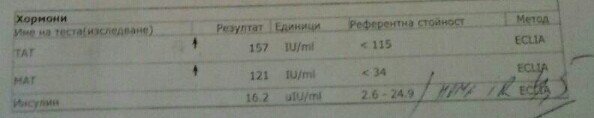 Хормони
Име на теста(изследване) Резултат Единици Референтна стойност Метод
ТАТ ↑ 157 IU/ml < 115 ECLIA
МАТ ↑ 121 IU/ml < 34 ECLIA
Инсулин 16.2 uIU/ml 2.6 - 24.9 ECLIA